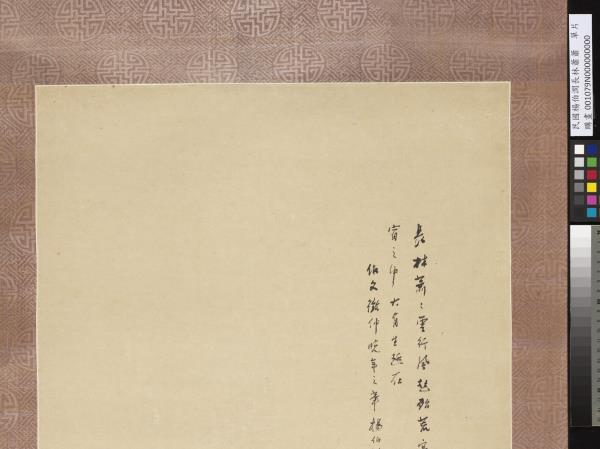 長林蕭〻雲行風起荒
之中大有生趣在
仿文徵仲晚年之筆楊伯
民國楊伯潤長林蕭蕭 單片
購畫 001079N000000000